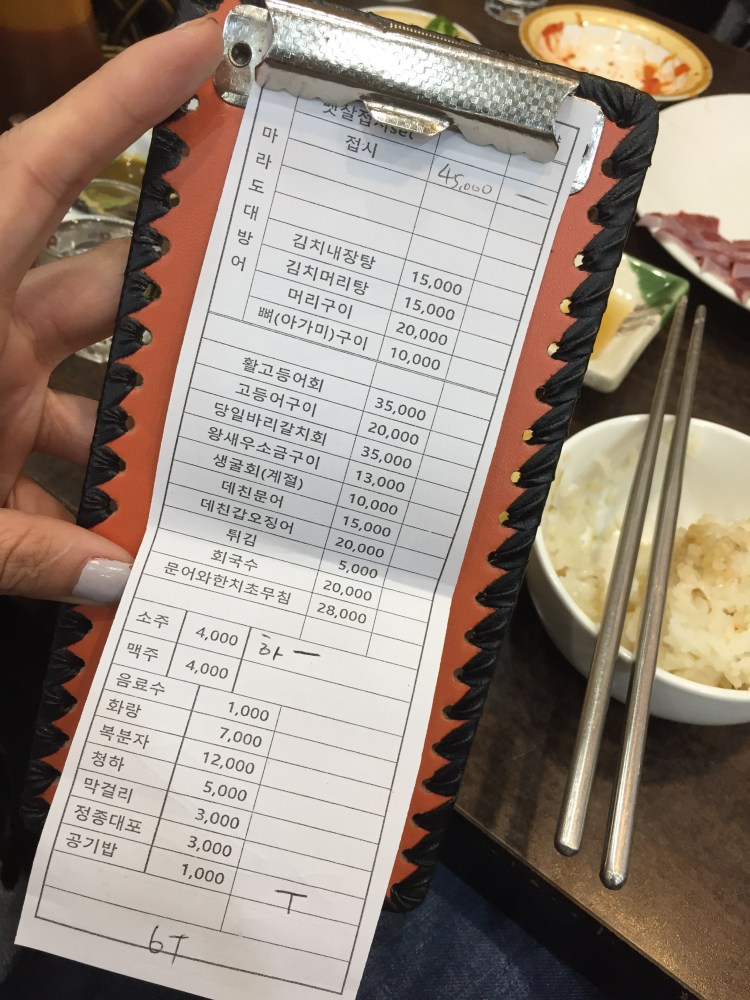 뱃살접시set
접시 45,000 —
마라도대방어
김치내장탕 15,000
김치머리탕 15,000
머리구이 20,000
뼈(아가미)구이 10,000
활고등어회 35,000
고등어구이 20,000
당일바리갈치회 35,000
왕새우소금구이 13,000
생굴회(계절) 10,000
데친문어 15,000
데친갑오징어 20,000
튀김 5,000
회국수 20,000
문어와한치초무침 28,000
소주 4,000 하 —
맥주 4,000
음료수 1,000
화랑 7,000
복분자 12,000
청하 5,000
막걸리 3,000
정종대포 3,000
공기밥 1,000 T
6T